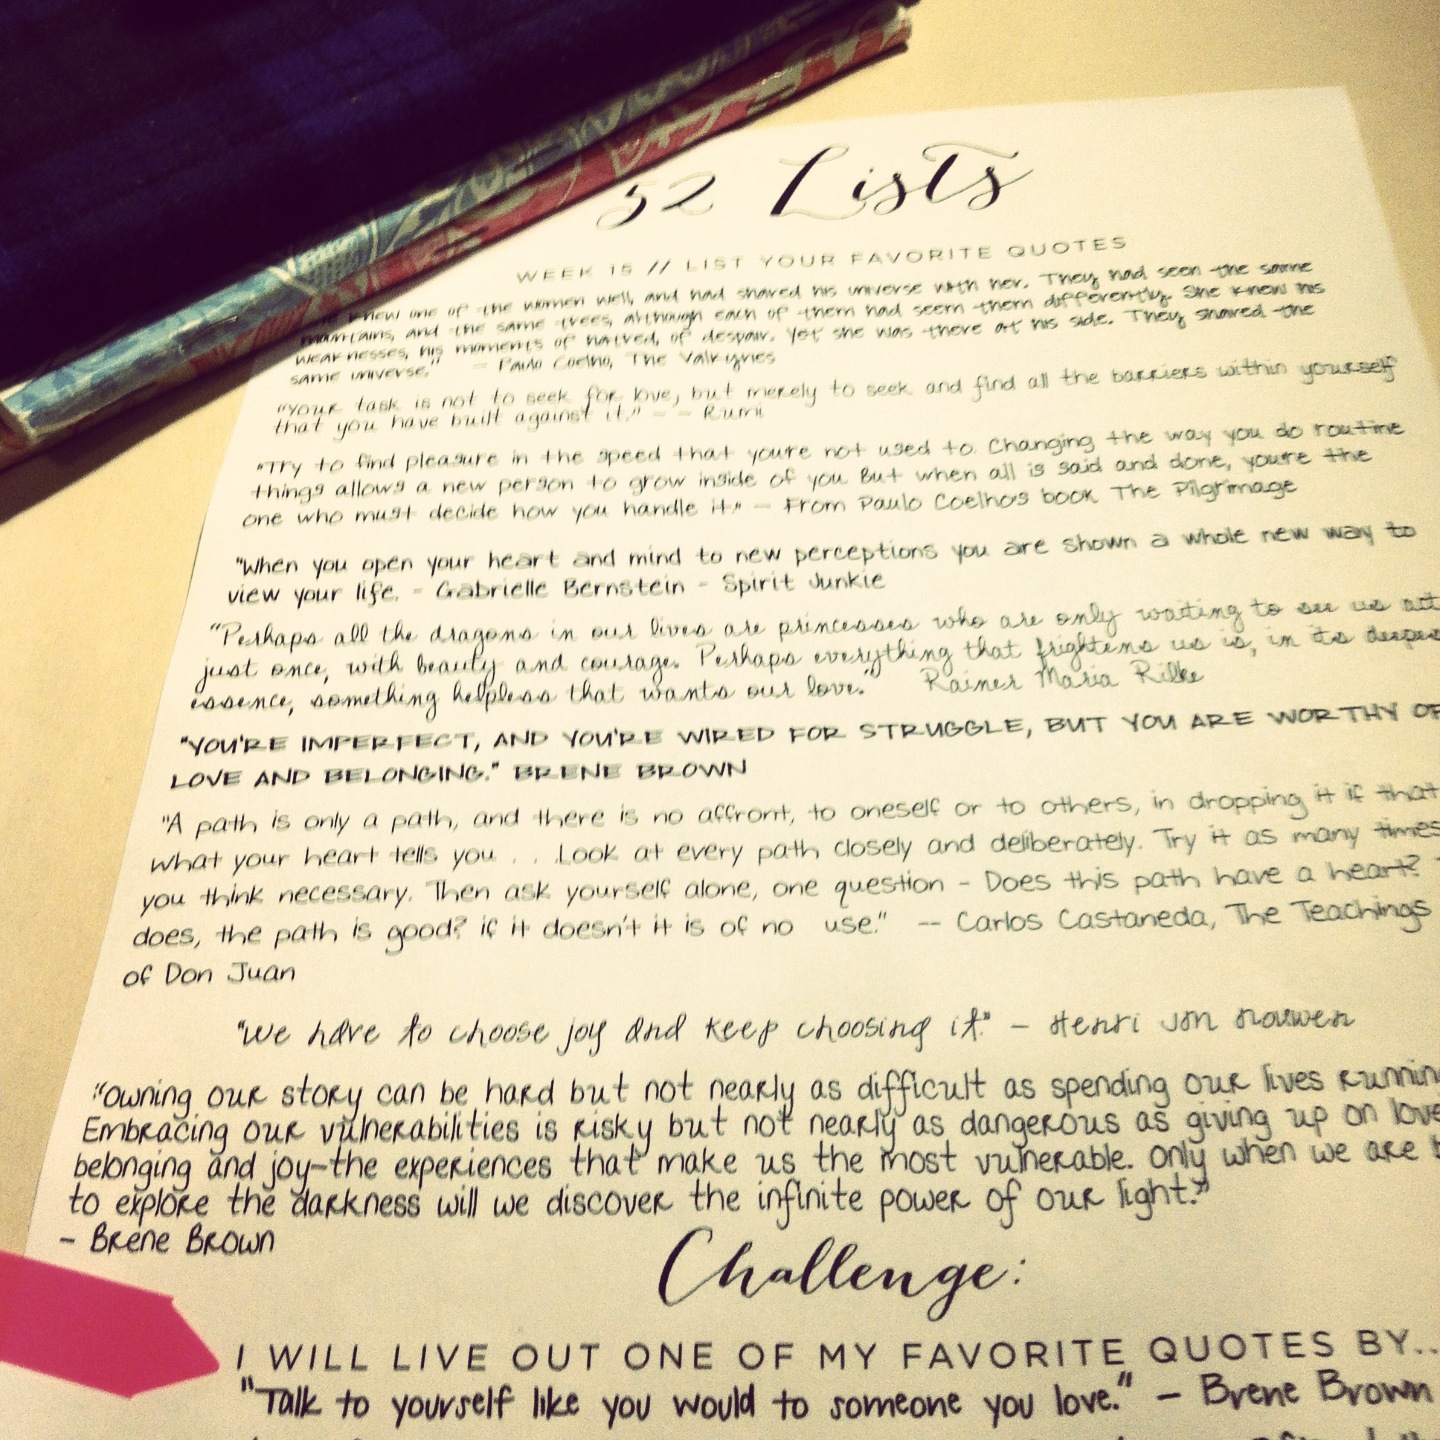 52 Lists
WEEK 15 // LIST YOUR FAVORITE QUOTES
knew one of the women well, and had shared his universe with her. They had seen the same
mountains, and the same trees, although each of them had seem them differently. She knew his
weaknesses, his moments of hatred, of despair. Yet she was there at his side. They shared the
same universe." - Paulo Coelho, The Valkyries
"Your task is not to seek for love, but merely to seek and find all the barriers within yourself
that you have built against it." - - Rumi
"Try to find pleasure in the speed that youre not used to. Changing the way you do routine
things allows a new person to grow inside of you. But when all is said and done, youre the
one who must decide how you handle it." - From Paulo Coelhos book The Pilgrimage
"When you open your heart and mind to new perceptions you are shown a whole new way to
view your life. - Gabrielle Bernstein - Spirit Junkie
"Perhaps all the dragons in our lives are princesses who are only waiting to see us act
just once, with beauty and courage. Perhaps everything that frightens us is, in its
essence, something helpless that wants our love." Rainer Maria Rilke
"YOU'RE IMPERFECT, AND YOU'RE WIRED FOR STRUGGLE, BUT YOU ARE WORTHY OF
LOVE AND BELONGING." BRENE BROWN
"A path is only a path, and there is no affront, to oneself or to others, in dropping it if that
what your heart tells you . . .Look at every path closely and deliberately. Try it as many times
you think necessary. Then ask yourself alone, one question - Does this path have a heart?
does, the path is good? if it doesn't it is of no use." -- Carlos Castaneda, The Teachings
of Don Juan
"We have to choose joy and keep choosing it." - Henri Jm Nouwen
"Owning our story can be hard but not nearly as difficult as spending our lives running
Embracing our vulnerabilities is risky but not nearly as dangerous as giving up on love
belonging and joy-the experiences that make us the most vulnerable. Only when we are
to explore the darkness will we discover the infinite power of our light."
- Brene Brown
Challenge:
I WILL LIVE OUT ONE OF MY FAVORITE QUOTES BY...
"Talk to yourself like you would to someone you love." - Brene Brown